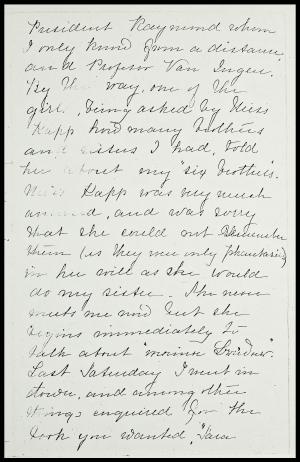 President Raymond whom
I only know from a distance,
and Professor Van Ingen.
By the way, one of the
girls, being asked by Miss
Kapp how many brothers
and sisters I had, told
her about my "six brothers".
Miss Kapp was very much
amused, and was sorry
that she could not remember
them (as they were only phantasies)
in her will as she would
do my sister. She never
meets me now but she
begins immediately to
talk about "meine Brüder".
Last Saturday I went in
town, and among other
things enquired for the
book you wanted, "Sara